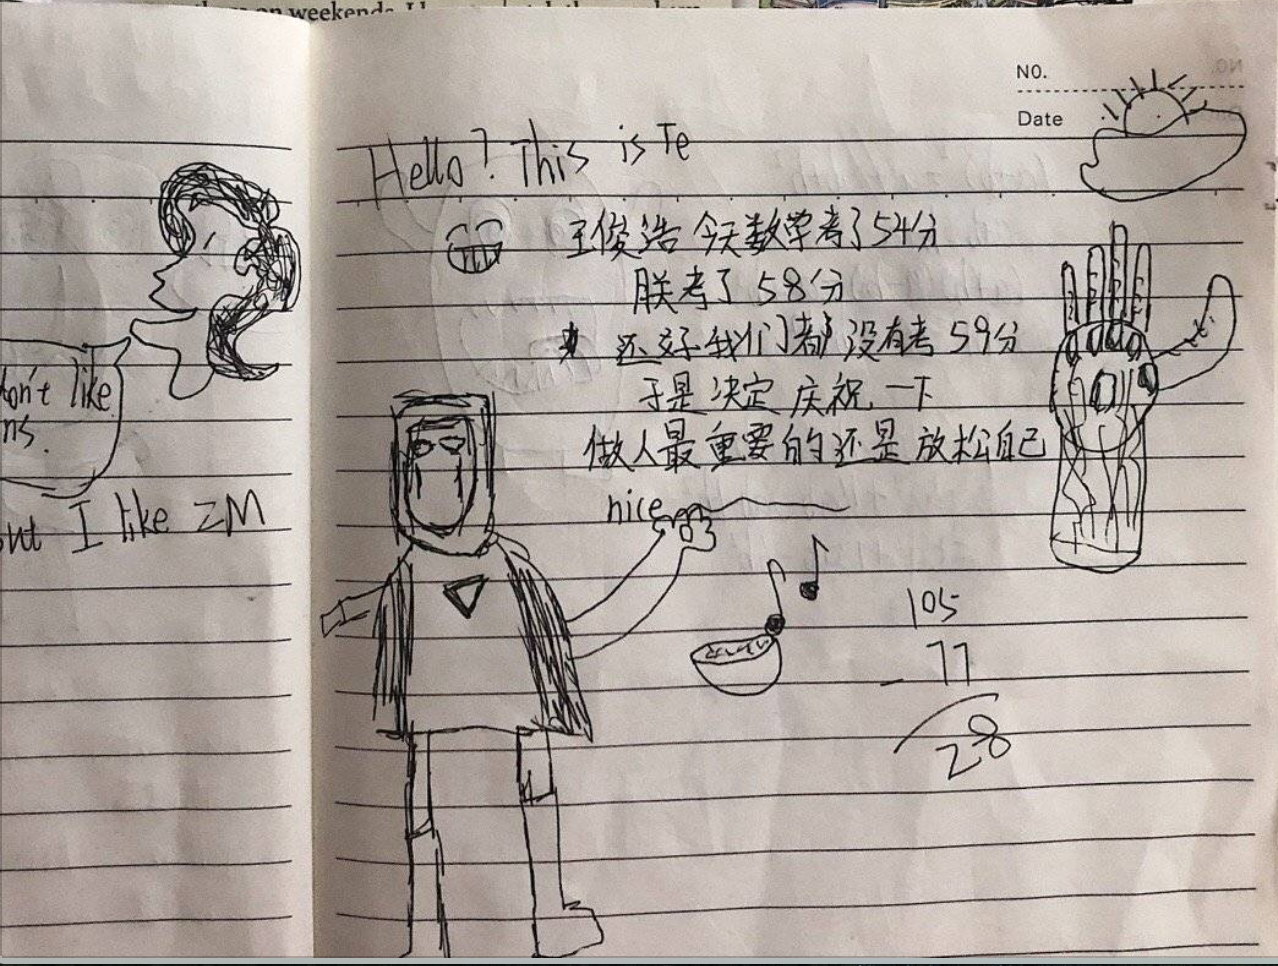 on weekends. I
don't like
ns.
I like ZM
NO.
Date
Hello? This is Te
王俊浩今天数学考了54分
朕考了58分
还好我们都没有考59分
于是决定庆祝一下
做人最重要的还是放松自己
nice
105
- 77
28